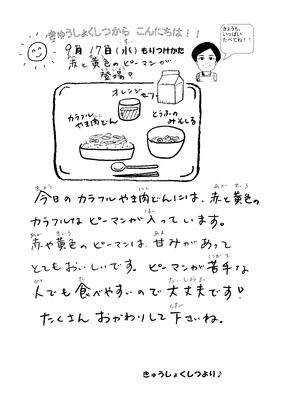 きゅうしょくしつから こんにちは！！
きょうも、
いっぱい
たべてね！！
9月17日(水) もりつけかた
赤と黄色のピーマンが
登場？
オレンジ
ゼリー
カラフル
やき肉どん
とうふの
みそしる
今日のカラフルやき肉どんには、赤と黄色の
カラフルなピーマンが入っています。
赤や黄色のピーマンは、甘みがあって
とてもおいしいです。ピーマンが苦手な
人でも食べやすいので大丈夫です！
たくさんおかわりして下さいね。
きゅうしょくしつより♪